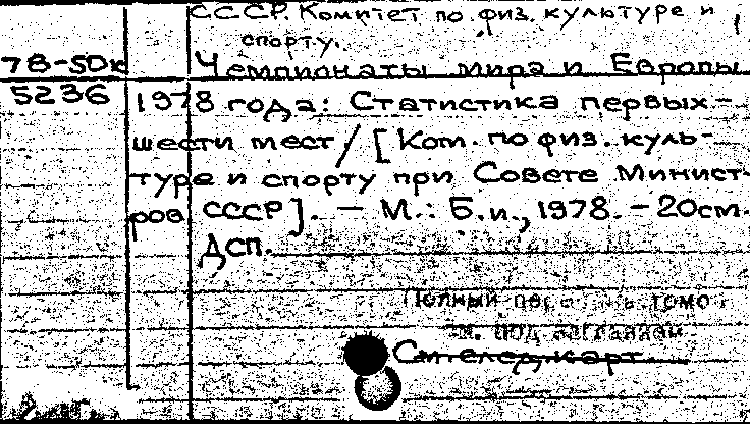 СССР. Комитет по физ. культуре и
спорту.
78-50к Чемпионаты мира и Европы
5236 1978 года: Статистика первых
шести мест / [Ком. по физ. куль-
туре и спорту при Совете Минист-
ров СССР]. — М.: Б.и., 1978. - 20см.
ДСП.
Полный томов
см. под заглавием
См. след. карт.